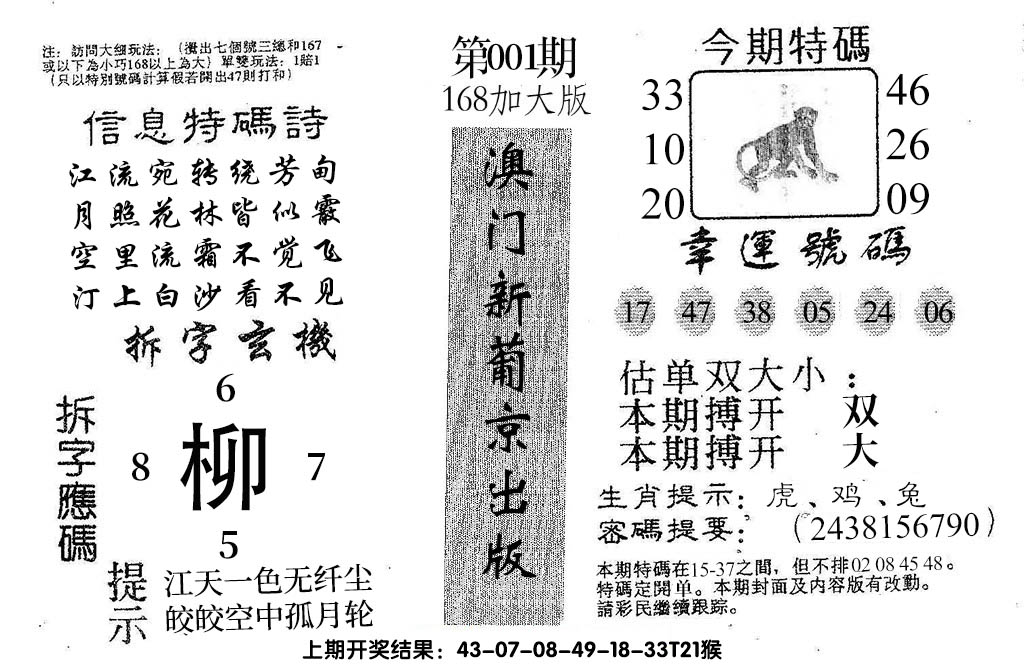 注：訪問大細玩法：（攪出七個號三總和167
或以下為小巧168以上為大）單雙玩法：1賠1
（只以特別號碼計算假若開出47則打和）
信息特碼詩
江流宛转绕芳甸
月照花林皆似霰
空里流霜不觉飞
汀上白沙看不见
拆字玄機
拆字應碼
6
8 柳 7
5
提示
江天一色无纤尘
皎皎空中孤月轮
第001期
168加大版
澳门新葡京出版
今期特碼
33 46
10 26
20 09
幸運號碼
17 47 38 05 24 06
估单双大小：
本期搏开 双
本期搏开 大
生肖提示：虎、鸡、兔
密碼提要：（2438156790）
本期特碼在15-37之間，但不排02 08 45 48。
特碼定開单。本期封面及内容版有改動。
請彩民繼續跟踪。
上期开奖结果：43-07-08-49-18-33T21猴